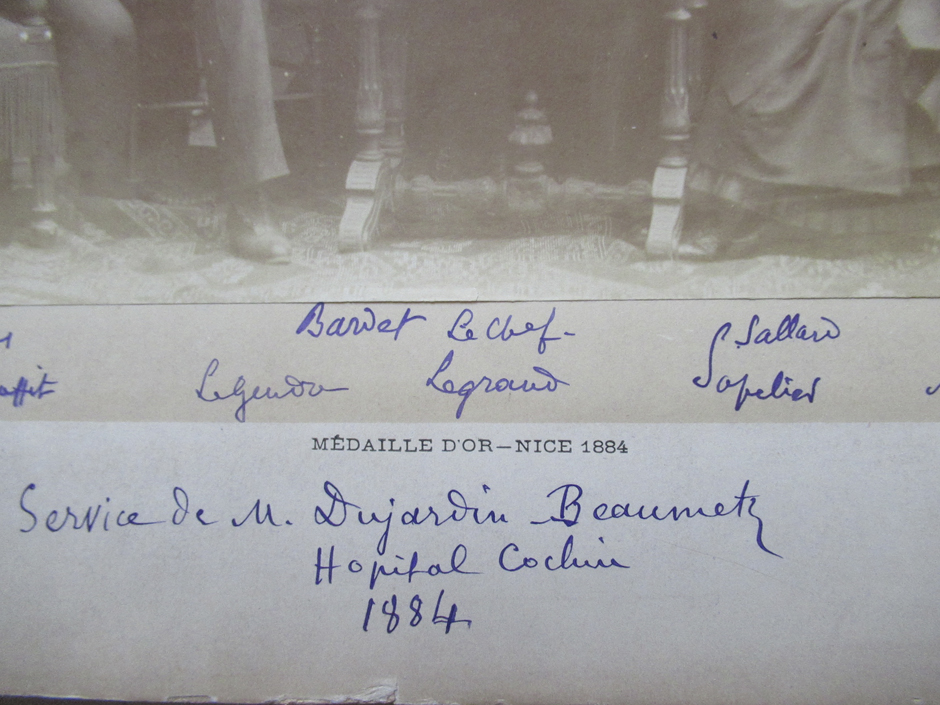 Bardet Le Chef-
G. Sallard
Legendre Legrand Sapelier
MÉDAILLE D'OR—NICE 1884
Service de M. Dujardin Beaumetz
Hopital Cochin
1884